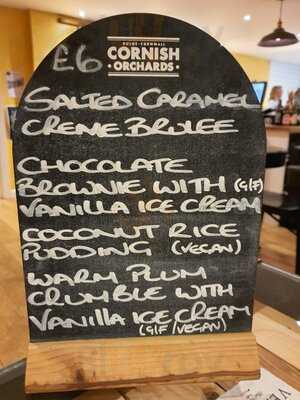 £6
DULOE · CORNWALL
CORNISH
· ORCHARDS ·
SALTED CARAMEL
CREME BRULEE
CHOCOLATE
BROWNIE WITH (G/F)
VANILLA ICE CREAM
COCONUT RICE
PUDDING (VEGAN)
WARM PLUM
CRUMBLE WITH
VANILLA ICE CREAM
(G/F/VEGAN)